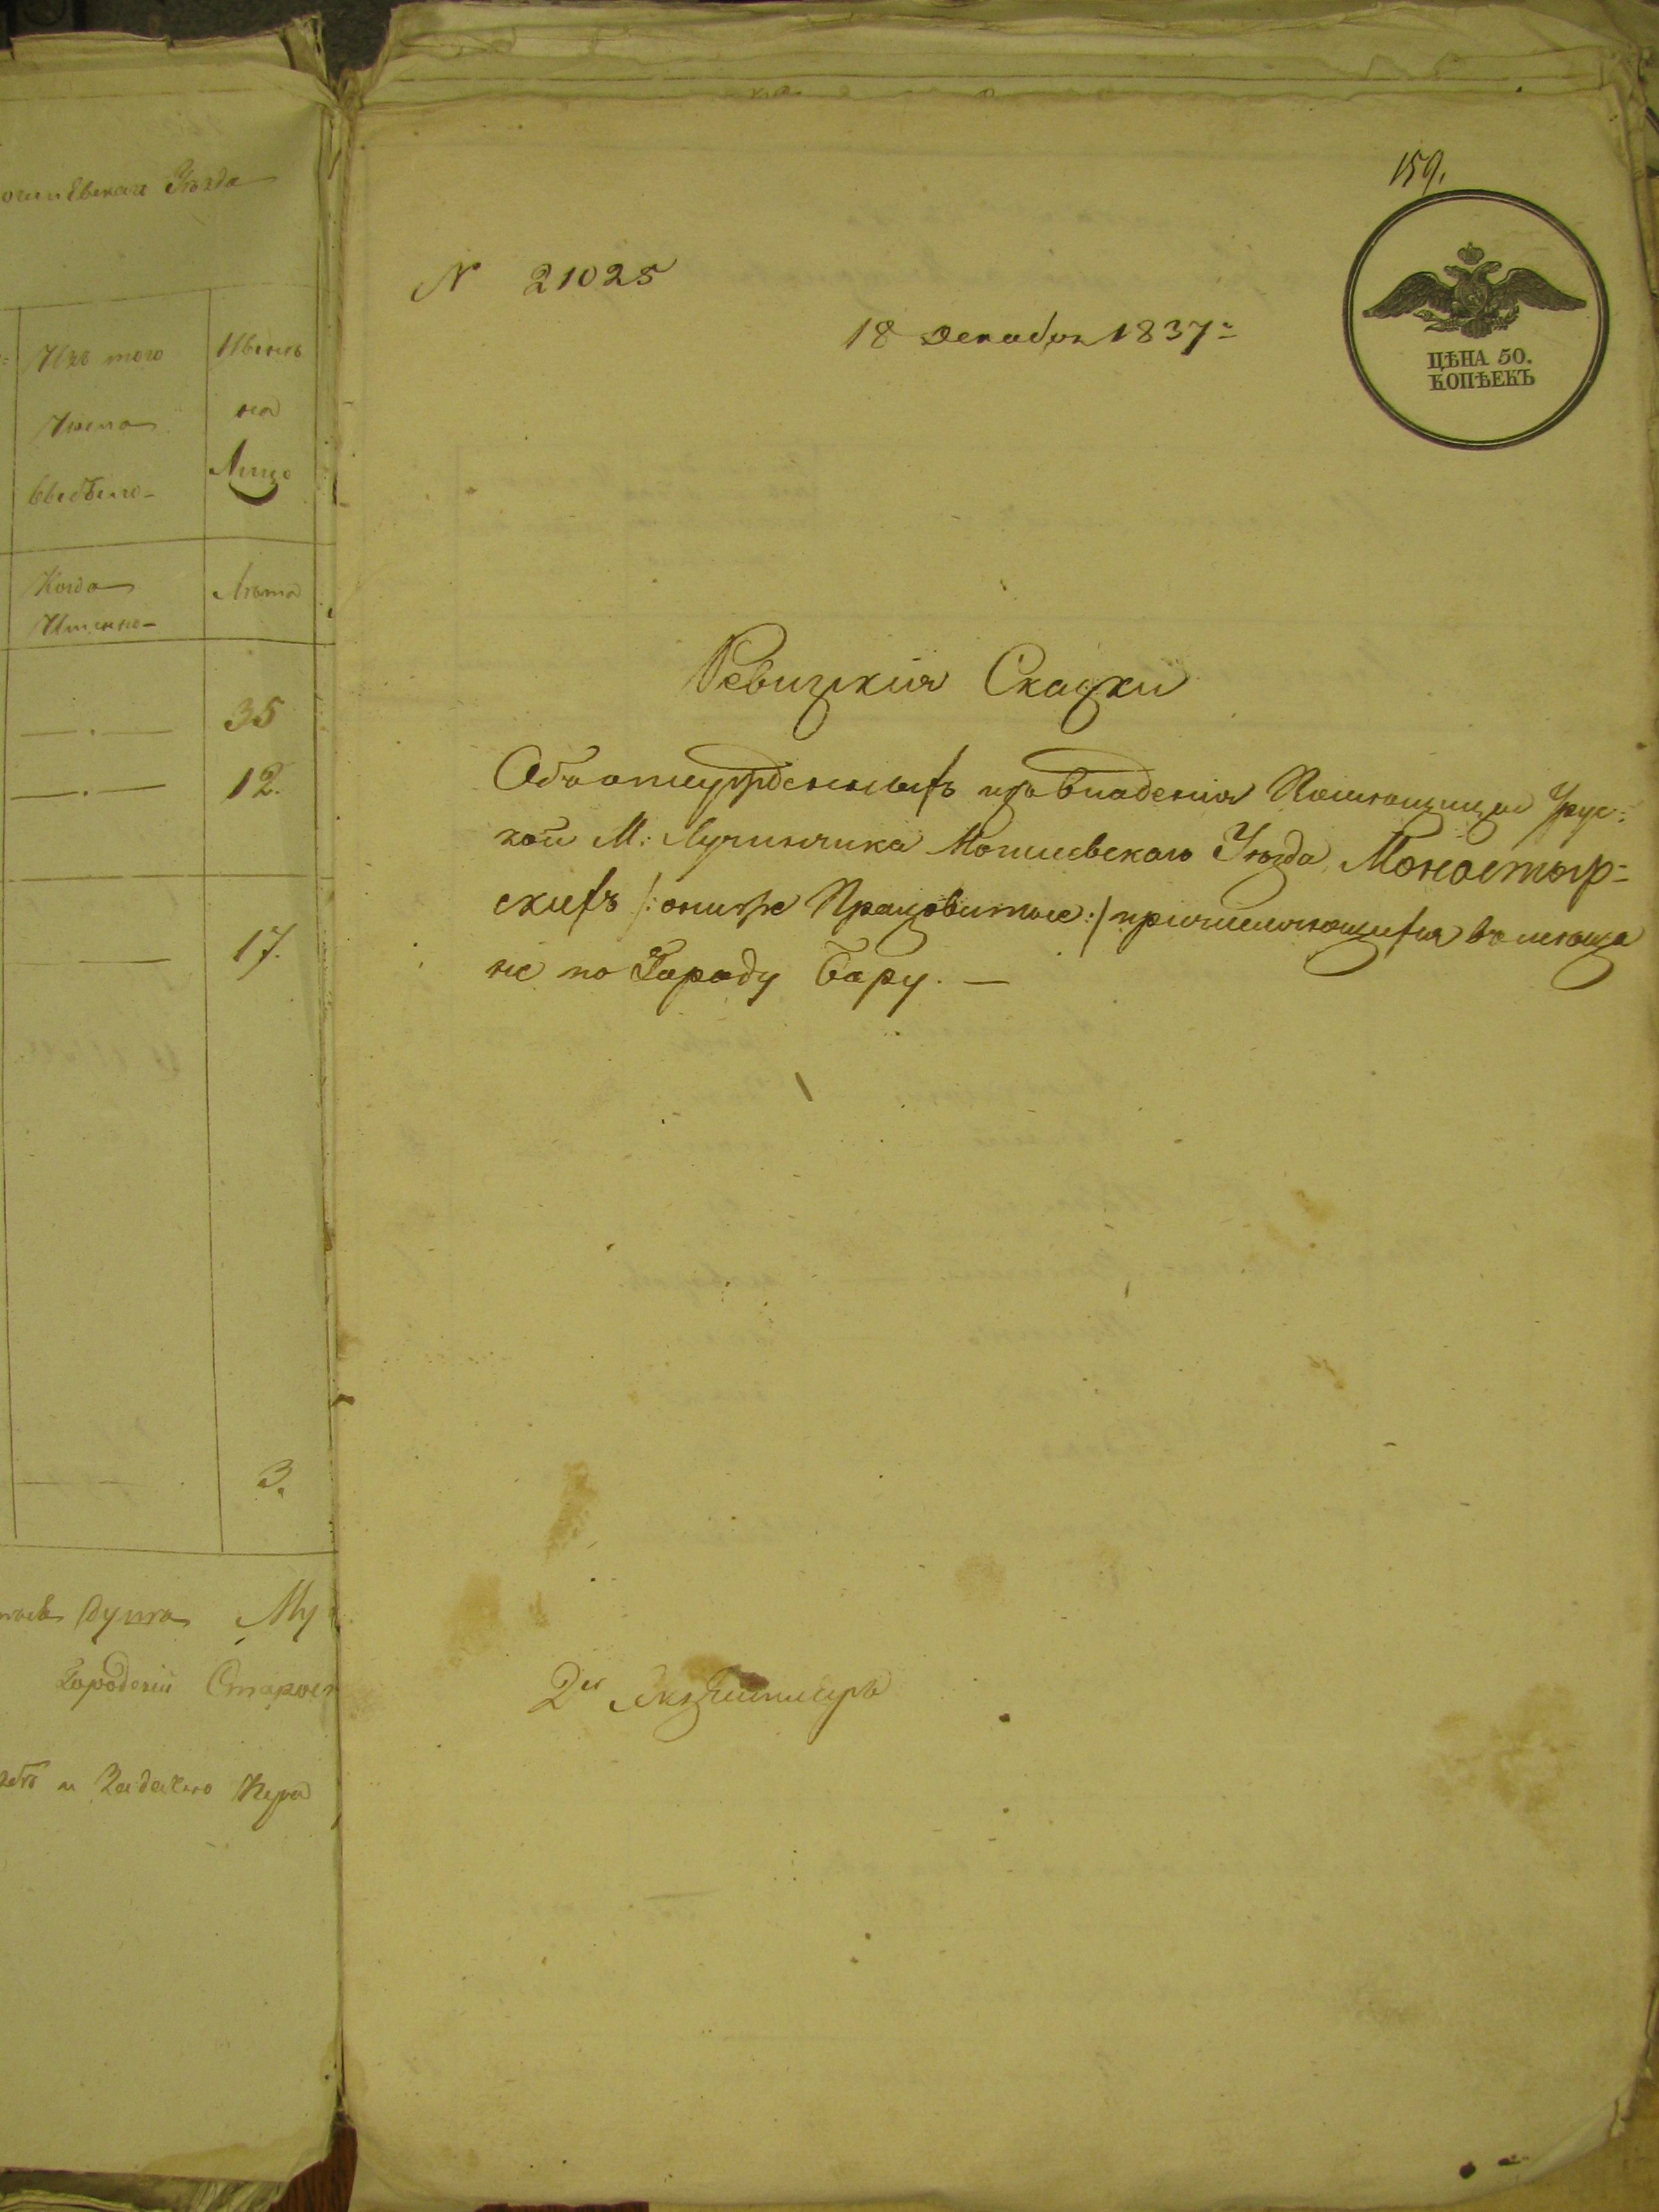 огилевскаго Уѣзда
Изъ того
Числа
выбыло
Когда
Имянно
Нынѣ
на
Лицо
Лѣта
35
12.
17.
3.
душа Му
Городской Старос
и Задаено
159.
ЦѢНА 50.
КОПѢЕКЪ
N 21025
18 декабря 1837
Ревизкія Сказки
Объ отсужденныхъ изъ владенія Помѣщицы Урус:
кой М: Лучинчика Могилевскаго Уѣзда, Монастыр=
скихъ /: онитже Працовитые :/ причисляющихся въ меща
не по Гораду Бару. —
2й Экземпляръ